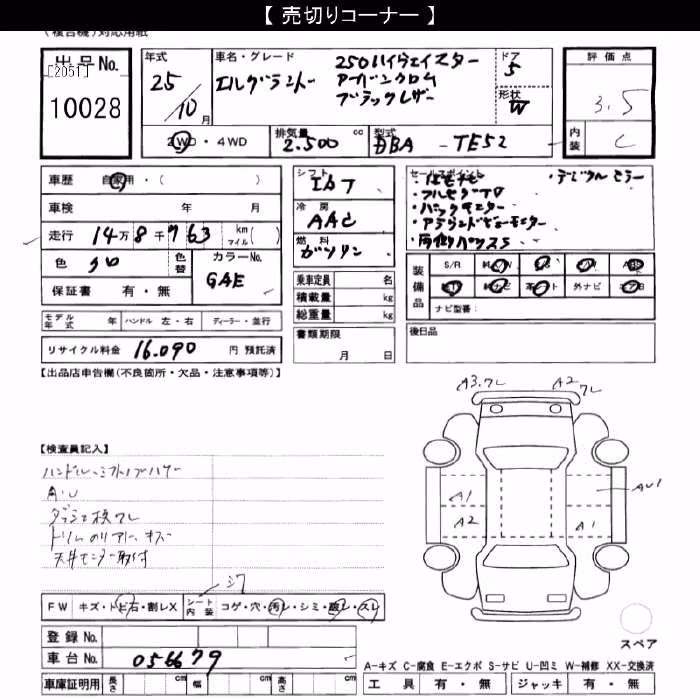 【 売切りコーナー 】
(複合機)対応用紙
出品No.
[2051]
10028
年式 25/10月
車名・グレード エルグランド 250ハイウェイスター アーバンクロム ブラックレザー
ドア 5
形状 W
評価点 3.5
内装 C
2WD・4WD
排気量 2.500 cc
型式 DBA - TE52
車歴 自家用・( )
車検 年 月
走行 14万8千763 km マイル( )
色 クロ
色替
カラーNo. GAE
保証書 有・無
シフト IAT
冷房 AAC
燃料 ガソリン
乗車定員 名
積載量 kg
総重量 kg
セールスポイント
・デジタルミラー
・フルセグTV
・バックモニター
・アラウンドビューモニター
・両側パワスラ
装備品 S/R
外ナビ
ナビ型番:
モデル年式 年
ハンドル 左・右
ディーラー・並行
書類期限 月 日
後日品
リサイクル料金 16.090 円 預託済
【出品店申告欄(不良箇所・欠品・注意事項等)】
A3.ワレ
A2 ワレ
【検査員記入】
A・U
A1
A2
A1
AU1
天井モニター取付
シワ
FW キズ・トビ石・割レX
シート内装 コゲ・穴・汚レ・シミ・破レ・スレ
登録No.
車台No. 056679
車庫証明用 長さ cm 幅 cm 高さ cm
スペア
A−キズ C−腐食 E−エクボ S−サビ U−凹ミ W−補修 XX−交換済
工具 有・無 ジャッキ 有・無